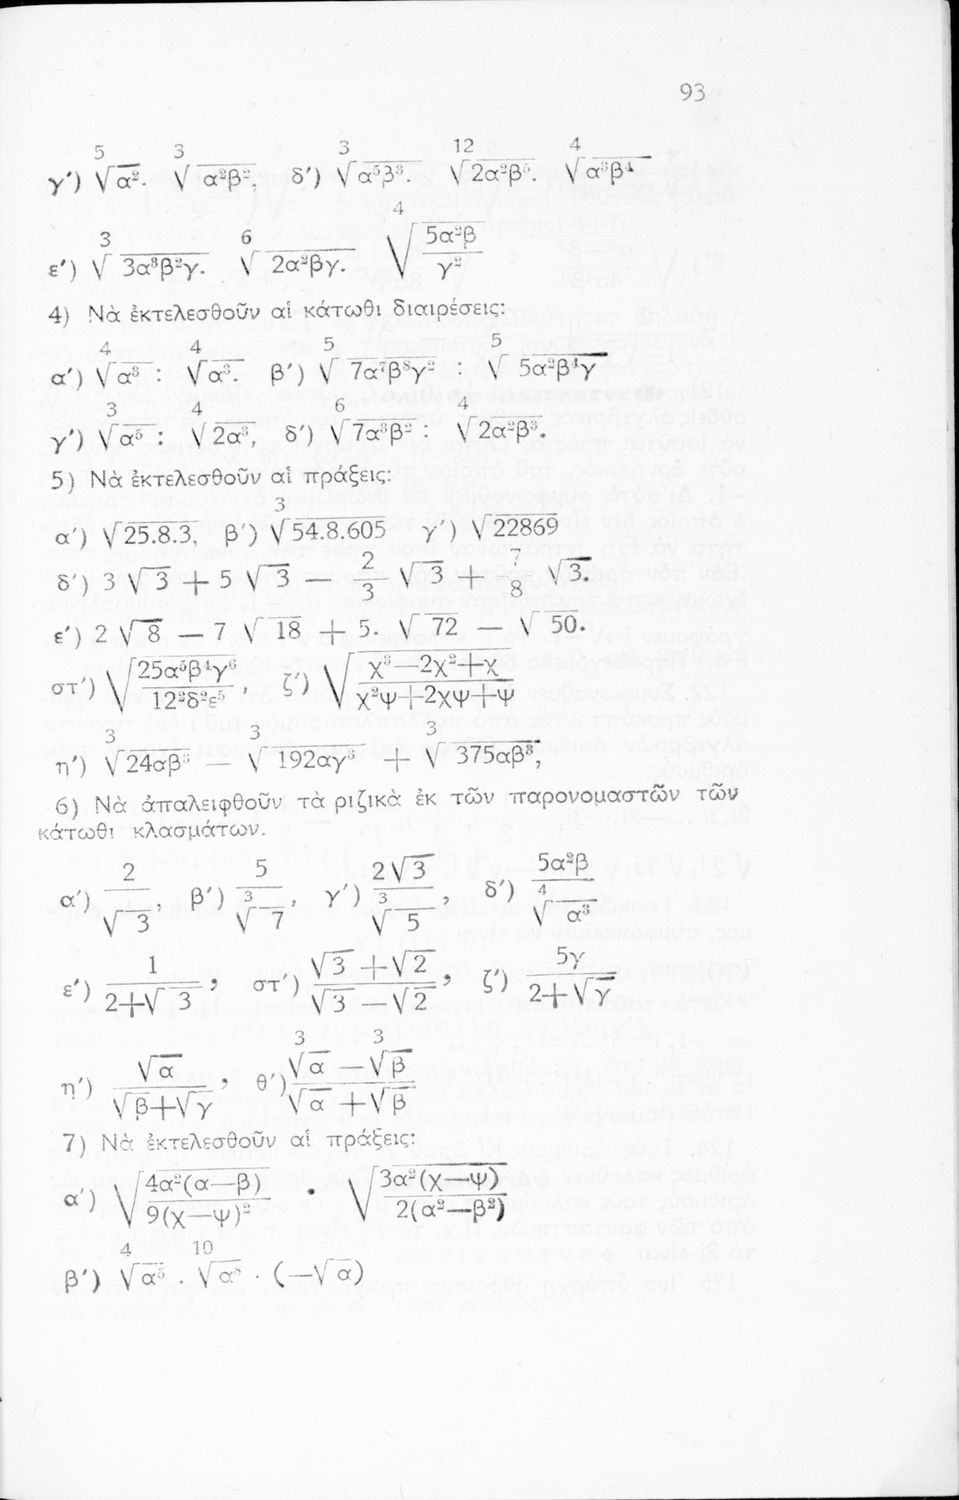 93
γ') ⁵√α². ³√α²β². δ') ³√α⁵β³. ¹²√2α²β⁵. ⁴√α³β⁴
ε') ³√3α³β²γ. ⁶√2α²βγ. ⁴√(5α²β/γ²)
4) Νὰ ἐκτελεσθοῦν αἱ κάτωθι διαιρέσεις:
α') ⁴√α³ : ⁴√α³. β') ⁵√7α⁷β⁸γ² : ⁵√5α²β⁴γ
γ') ³√α⁵ : ⁴√2α³, δ') ⁶√7α³β² : ⁴√2α²β³.
5) Νὰ ἐκτελεσθοῦν αἱ πράξεις:
α') √25.8.3, β') ³√54.8.605 γ') √22869
δ') 3 √3 + 5 √3 — 2/3 √3 + 7/8 √3.
ε') 2 √8 — 7 √18 + 5. √72 — √50.
στ') √(25α⁵β⁴γ⁶/12²δ²ε⁵) , ζ') √(χ³—2χ²+χ/χ²ψ+2χψ+ψ)
η') ³√24αβ³ — ³√192αγ³ + ³√375αβ³,
6) Νὰ ἀπαλειφθοῦν τὰ ριζικὰ ἐκ τῶν παρονομαστῶν τῶν
κάτωθι κλασμάτων.
α') 2/√3, β') 5/³√7, γ') 2√3/³√5, δ') 5α²β/⁴√α³
ε') 1/(2+√3), στ') (√3+√2)/(√3—√2), ζ') 5γ/(2+√γ)
η') √α/(√β+√γ), θ') (³√α—³√β)/(√α+√β)
7) Νὰ ἐκτελεσθοῦν αἱ πράξεις:
α') √(4α²(α—β)/9(χ—ψ)²) · √(3α²(χ—ψ)/2(α²—β²))
β') ⁴√α⁵ . ¹⁰√α⁸ · (—√α)